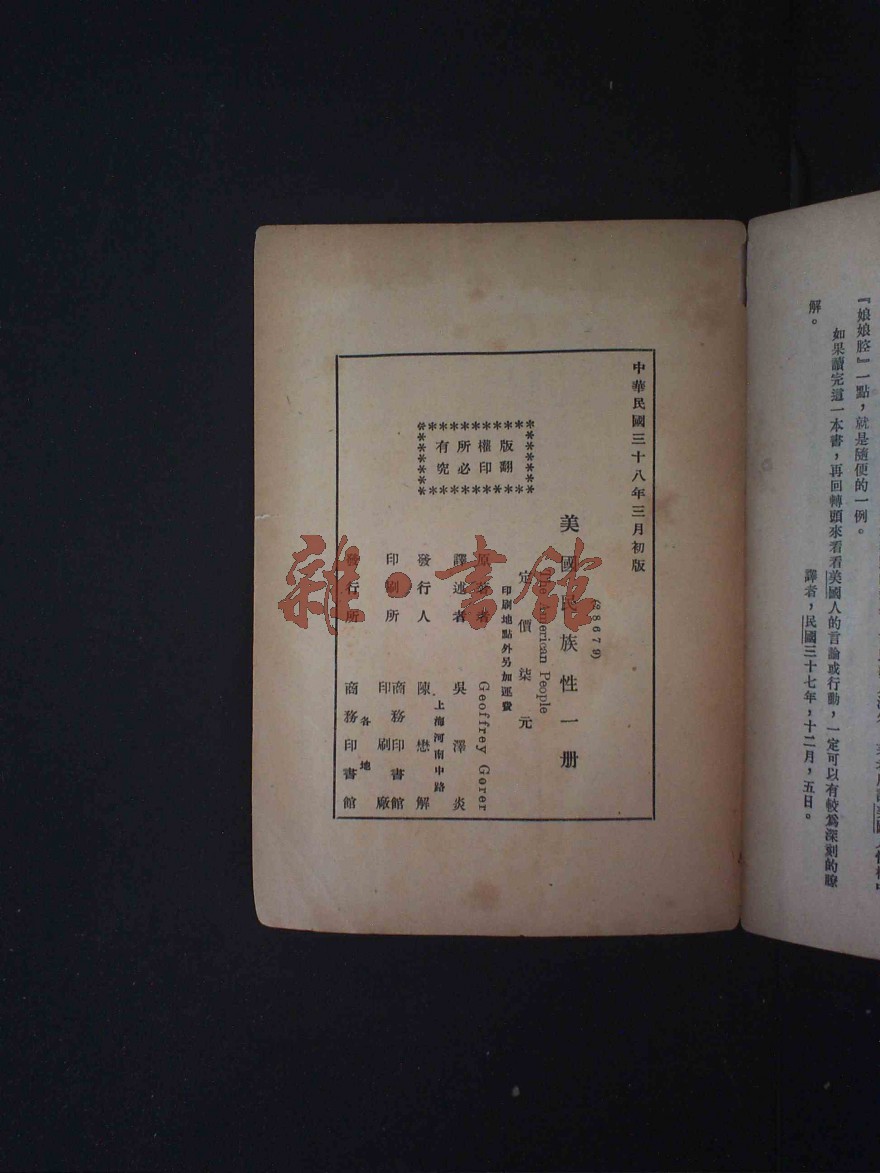 『娘娘腔』一點，就是隨便的一例。
如果讀完這一本書，再回轉頭來看看美國人的言論或行動，一定可以有較爲深刻的瞭
解。
譯者，民國三十七年，十二月，五日。
中華民國三十八年三月初版
美國民族性一册
The American People
定價柒元
印刷地點外另加運費
版權所有
翻印必究
原著者 Geoffrey Gorer
譯述者 吳澤炎
發行人 陳懋解
上海河南中路
印刷所 商務印書館
印刷廠
發行所 商務印書館
各地
雜·書館